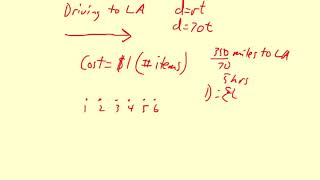 Driving to LA
d=rt
d=70t
Cost = $1 (# items)
350 miles to LA
70
5 hrs
1 2 3 4 5 6